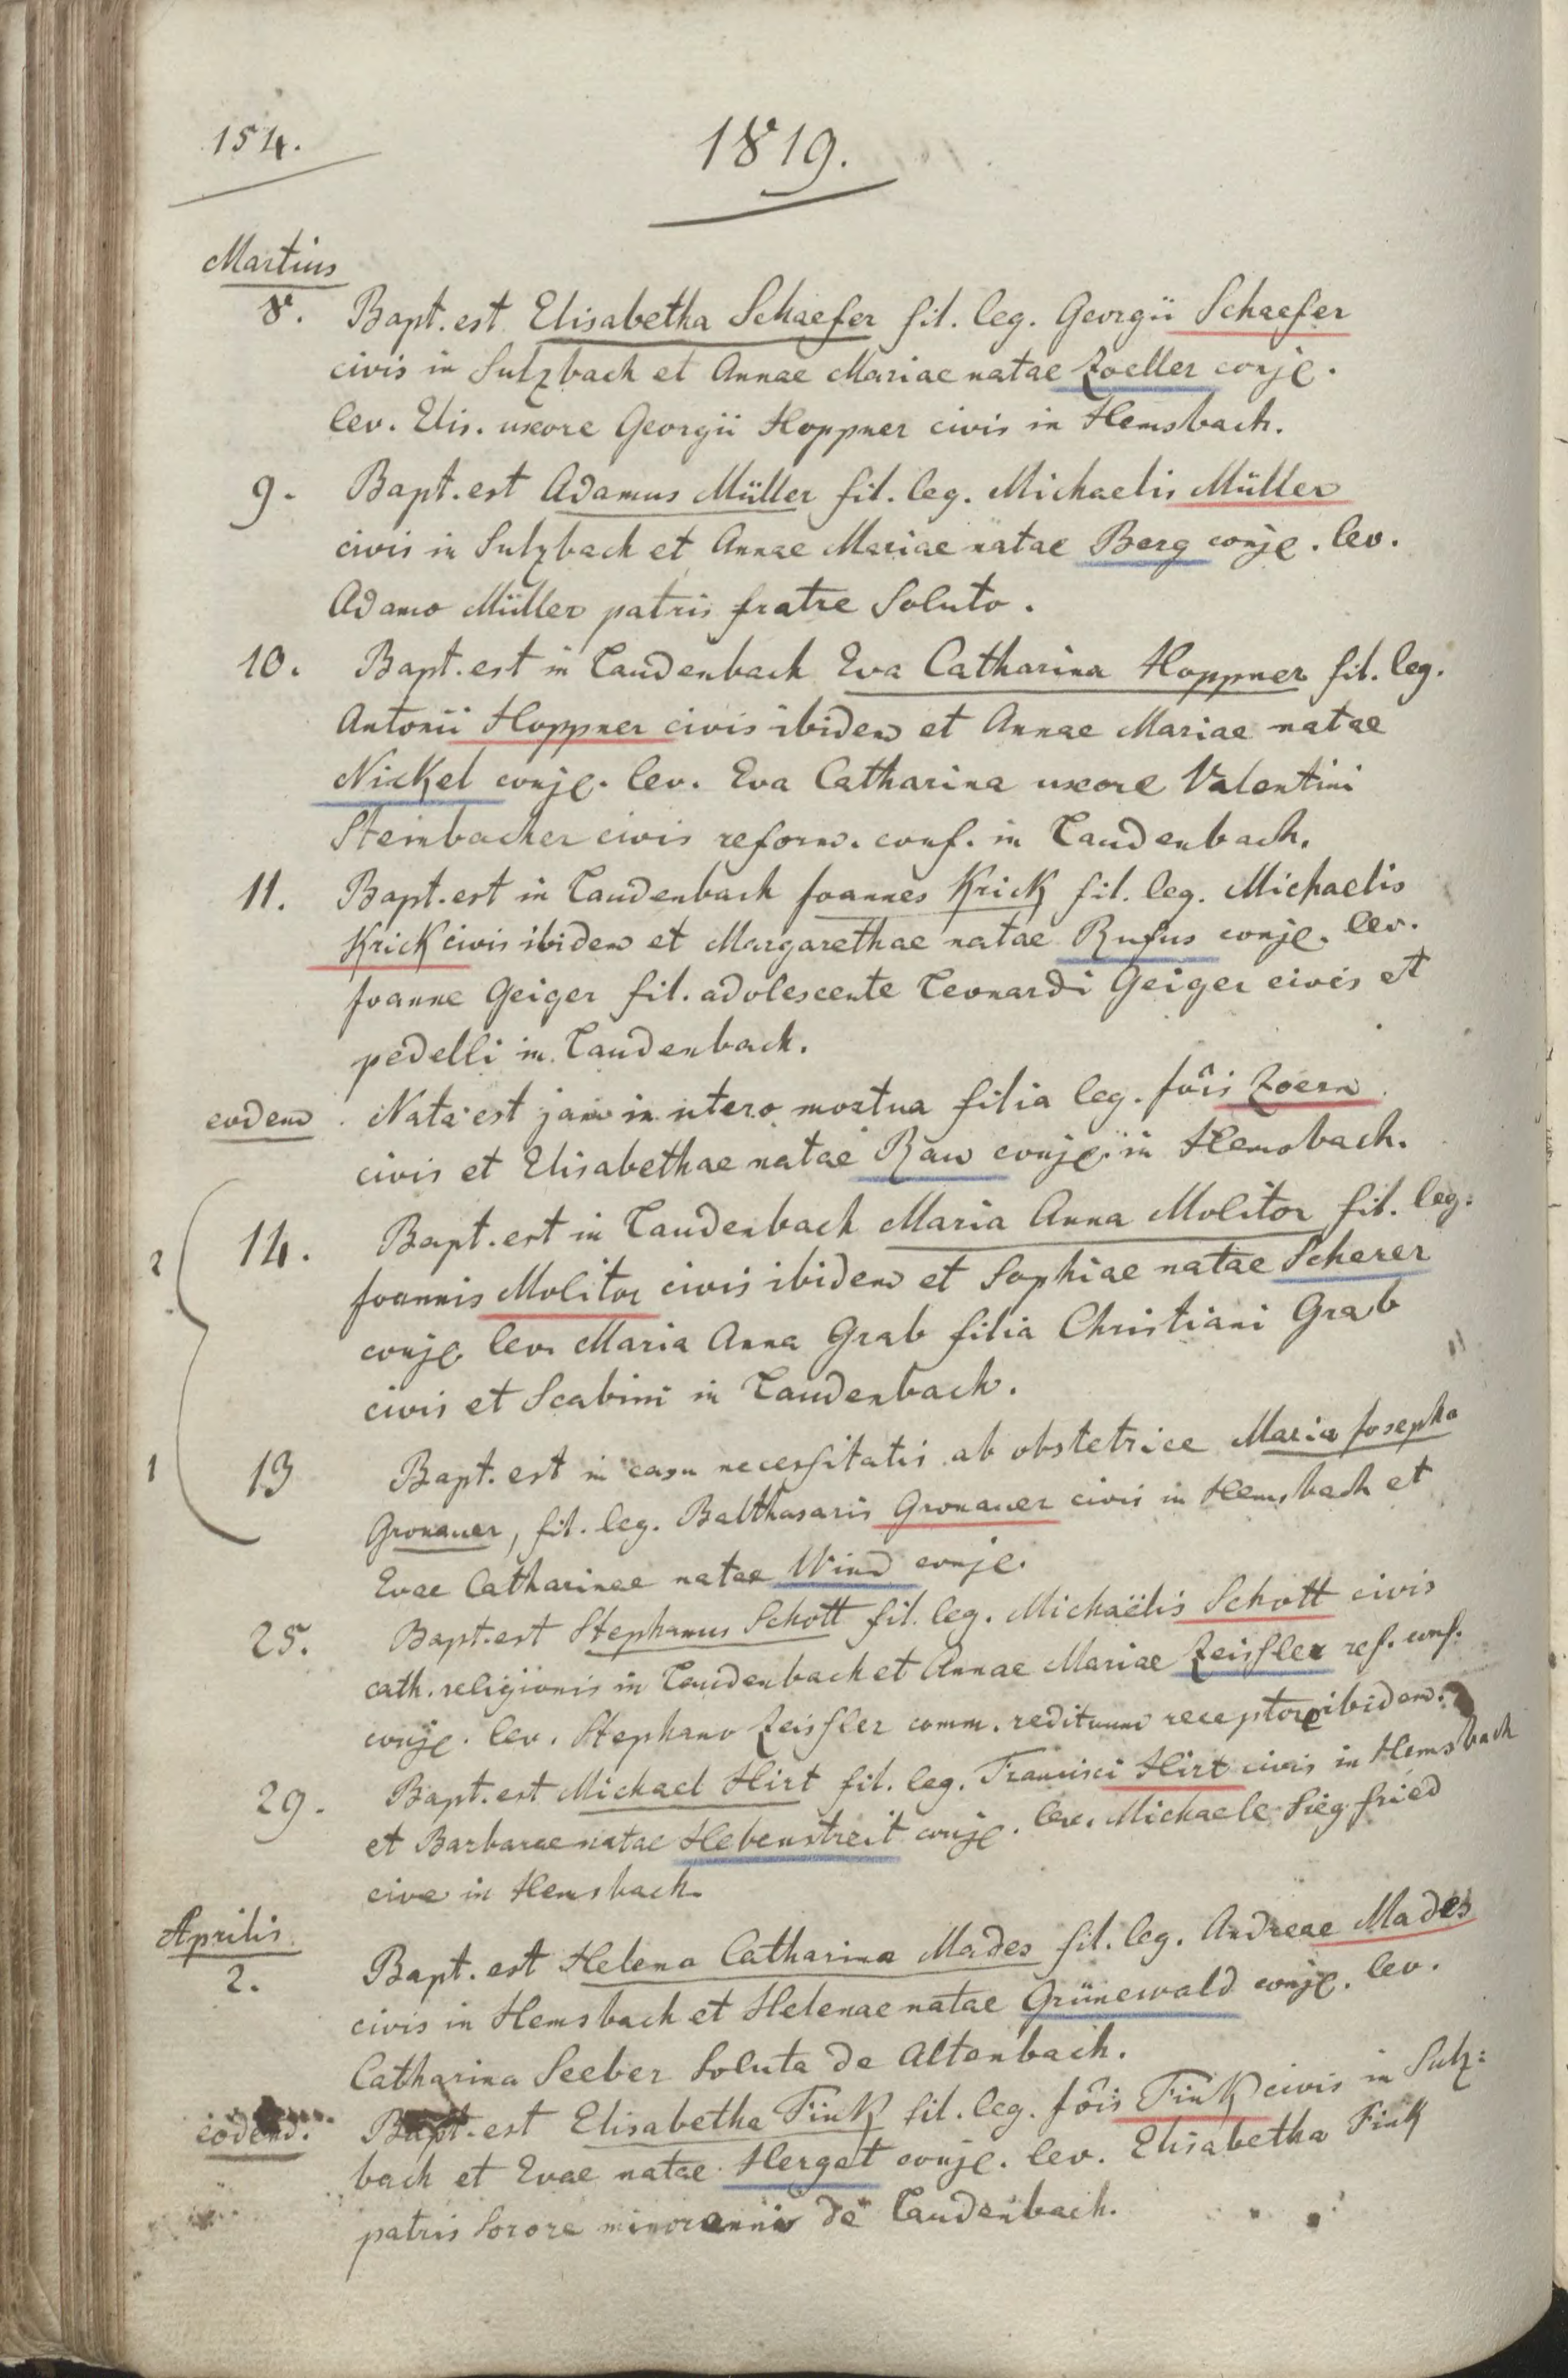 154.
1819.
Martius
8. Bapt. est Elisabetha Schaefer fil. leg. Georgii Schaefer
civis in Sulzbach et Annae Mariae natae Zoeller conjg.
lev. Elis. uxore Georgii Hoppner civis in Hemsbach.
9. Bapt. est Adamus Müller fil. leg. Michaelis Müller
civis in Sulzbach et Annae Mariae natae Berg conjg. lev.
Adamo Müller patris fratre soluto.
10. Bapt. est in Laudenbach Eva Catharina Hoppner fil. leg.
Antonii Hoppner civis ibidem et Annae Mariae natae
Nickel conjg. lev. Eva Catharina uxore Valentini
Steinbacher civis reform. conf. in Laudenbach.
11. Bapt. est in Laudenbach Joannes Krick fil. leg. Michaelis
Krick civis ibidem et Margarethae natae Rufus conjg. lev.
Joanne Geiger fil. adolescente Leonardi Geiger civis et
pedelli in Laudenbach.
eodem Nata est jam in utero mortua filia leg. Jôis Zoern
civis et Elisabethae natae Rau conjg. in Hemsbach.
2 14. Bapt. est in Laudenbach Maria Anna Molitor fil. leg.
Joannis Molitor civis ibidem et Sophiae natae Scherer
conjg. lev. Maria Anna Grab filia Christiani Grab
civis et Scabini in Laudenbach.
1 13 Bapt. est in casu necessitatis ab obstetrice Maria Josepha
Gronauer, fil. leg. Balthasaris Gronauer civis in Hemsbach et
Evae Catharinae natae Wind conjg.
25. Bapt. est Stephanus Schott fil. leg. Michaëlis Schott civis
cath. religionis in Laudenbach et Annae Mariae Zeissler ref. conf.
conjg. lev. Stephano Zeissler comm. redituum receptore ibidem.
29. Bapt. est Michael Hirt fil. leg. Francisci Hirt civis in Hemsbach
et Barbarae natae Hebenstreit conjg. lev. Michaele Siegfried
cive in Hemsbach.
Aprilis
2. Bapt. est Helena Catharina Mades fil. leg. Andreae Mades
civis in Hemsbach et Helenae natae Grünewald conjg. lev.
Catharina Seeber soluta de Altenbach.
eodem. Bapt. est Elisabetha Fink fil. leg. Jôis Fink civis in Sulz:
bach et Evae natae Hergat conjg. lev. Elisabetha Fink
patris sorore minorenni de Laudenbach.